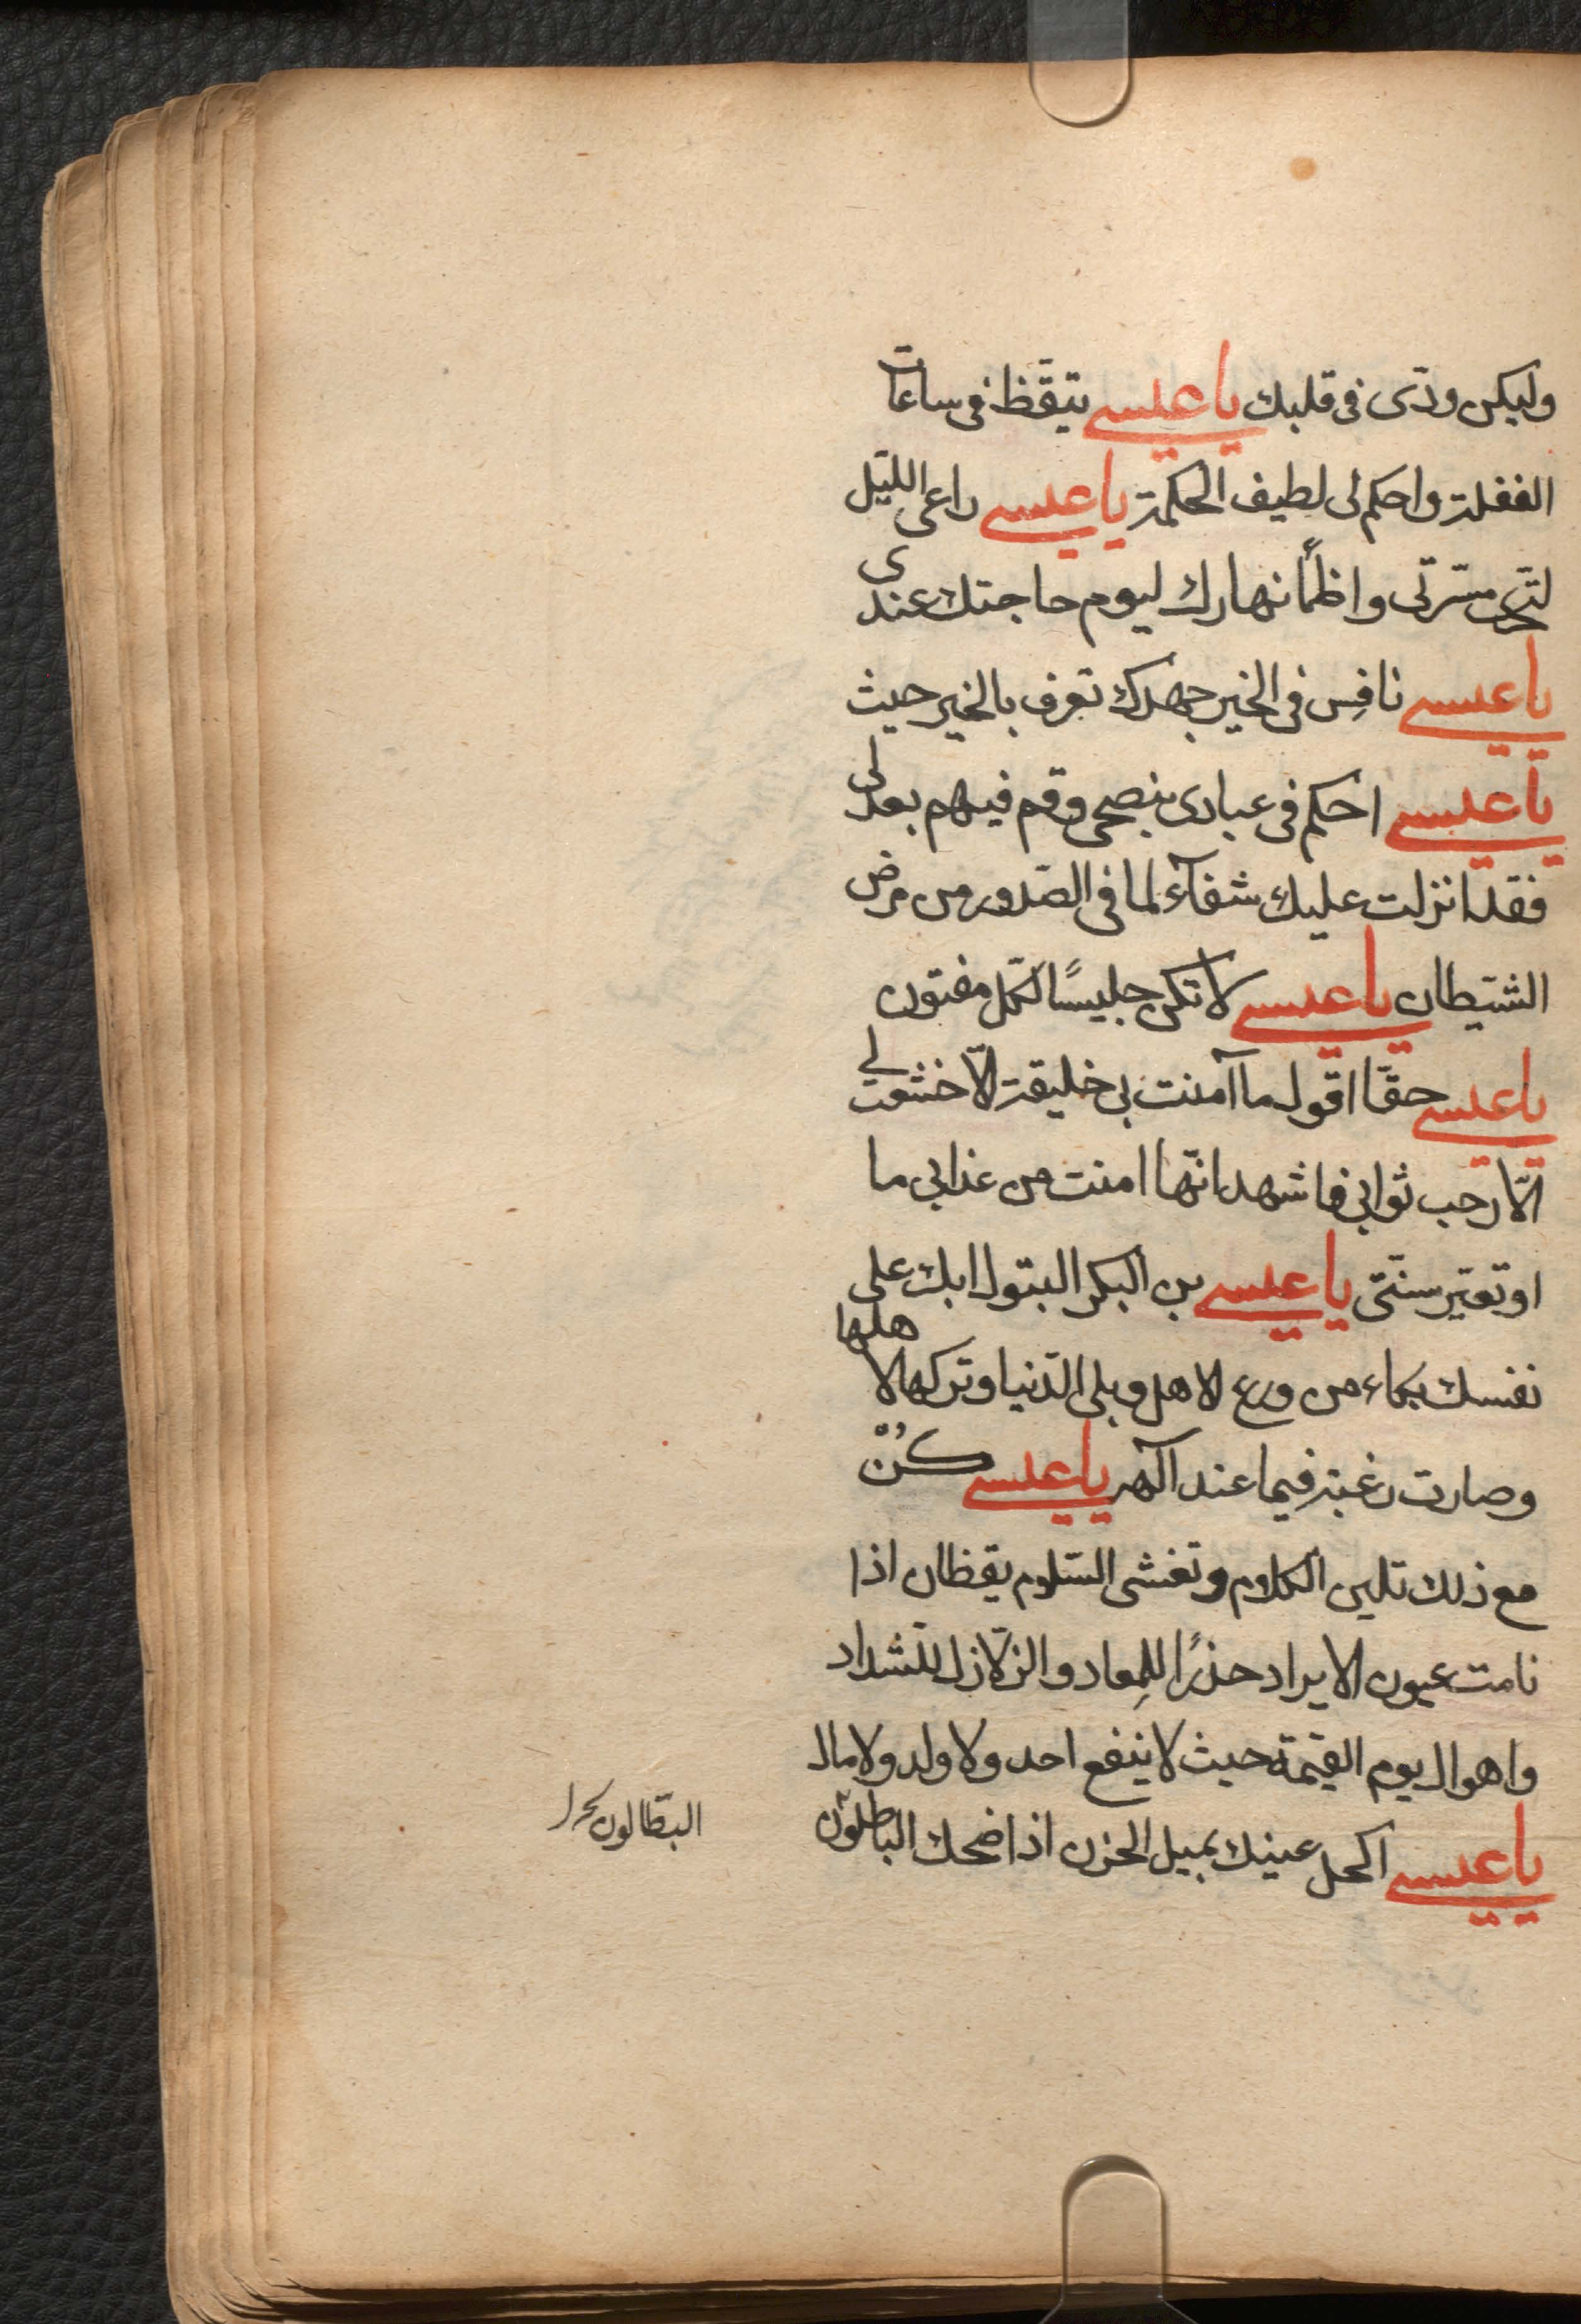 وليكن ودّى فى قلبك يا عيسى تيقّظ فى ساعات
الغفلة واحكم لى لطيف الحكمة يا عيسى راعى الليّل
لتحرى مسّرتى واظمأ نهارك ليوم حاجتك عندى
يا عيسى نافِس فى الخير جهدك تعرف بالخير حيث
يا عيسى احكم فى عبادى بنصحى وقم فيهم بعدلى
فقد انزلت عليك شفآء لما فى الصّدور من مرض
الشيّطان يا عيسى لا تكن جليسًا لكلّ مفتون
يا عيسى حقّا اقول ما آمنت بى خليقة الّا خشعت لى
الّا رجب ثوابى فاشهد انّها امنت من عذابى ما
او تغيّر سنّتى يا عيسى بن البكر البتول ابك على
نفسك بكاء من ورع لاهل وبلى الدّنيا وتركها لاهلها
وصارت رغبته فيما عند آلهه يا عيسى كُنْ
مع ذلك تلين الكلام وتفشى السّلام يقظان اذا
نامت عيون الايراد حذرًا للِمعاد والزّلازل للّشداد
واهوال يوم القيٰمة حيث لا ينفع احد ولا ولد ولا مال
يا عيسى اكحل عينيك بميل الحزن اذا ضحك الباطلون
البطّالون